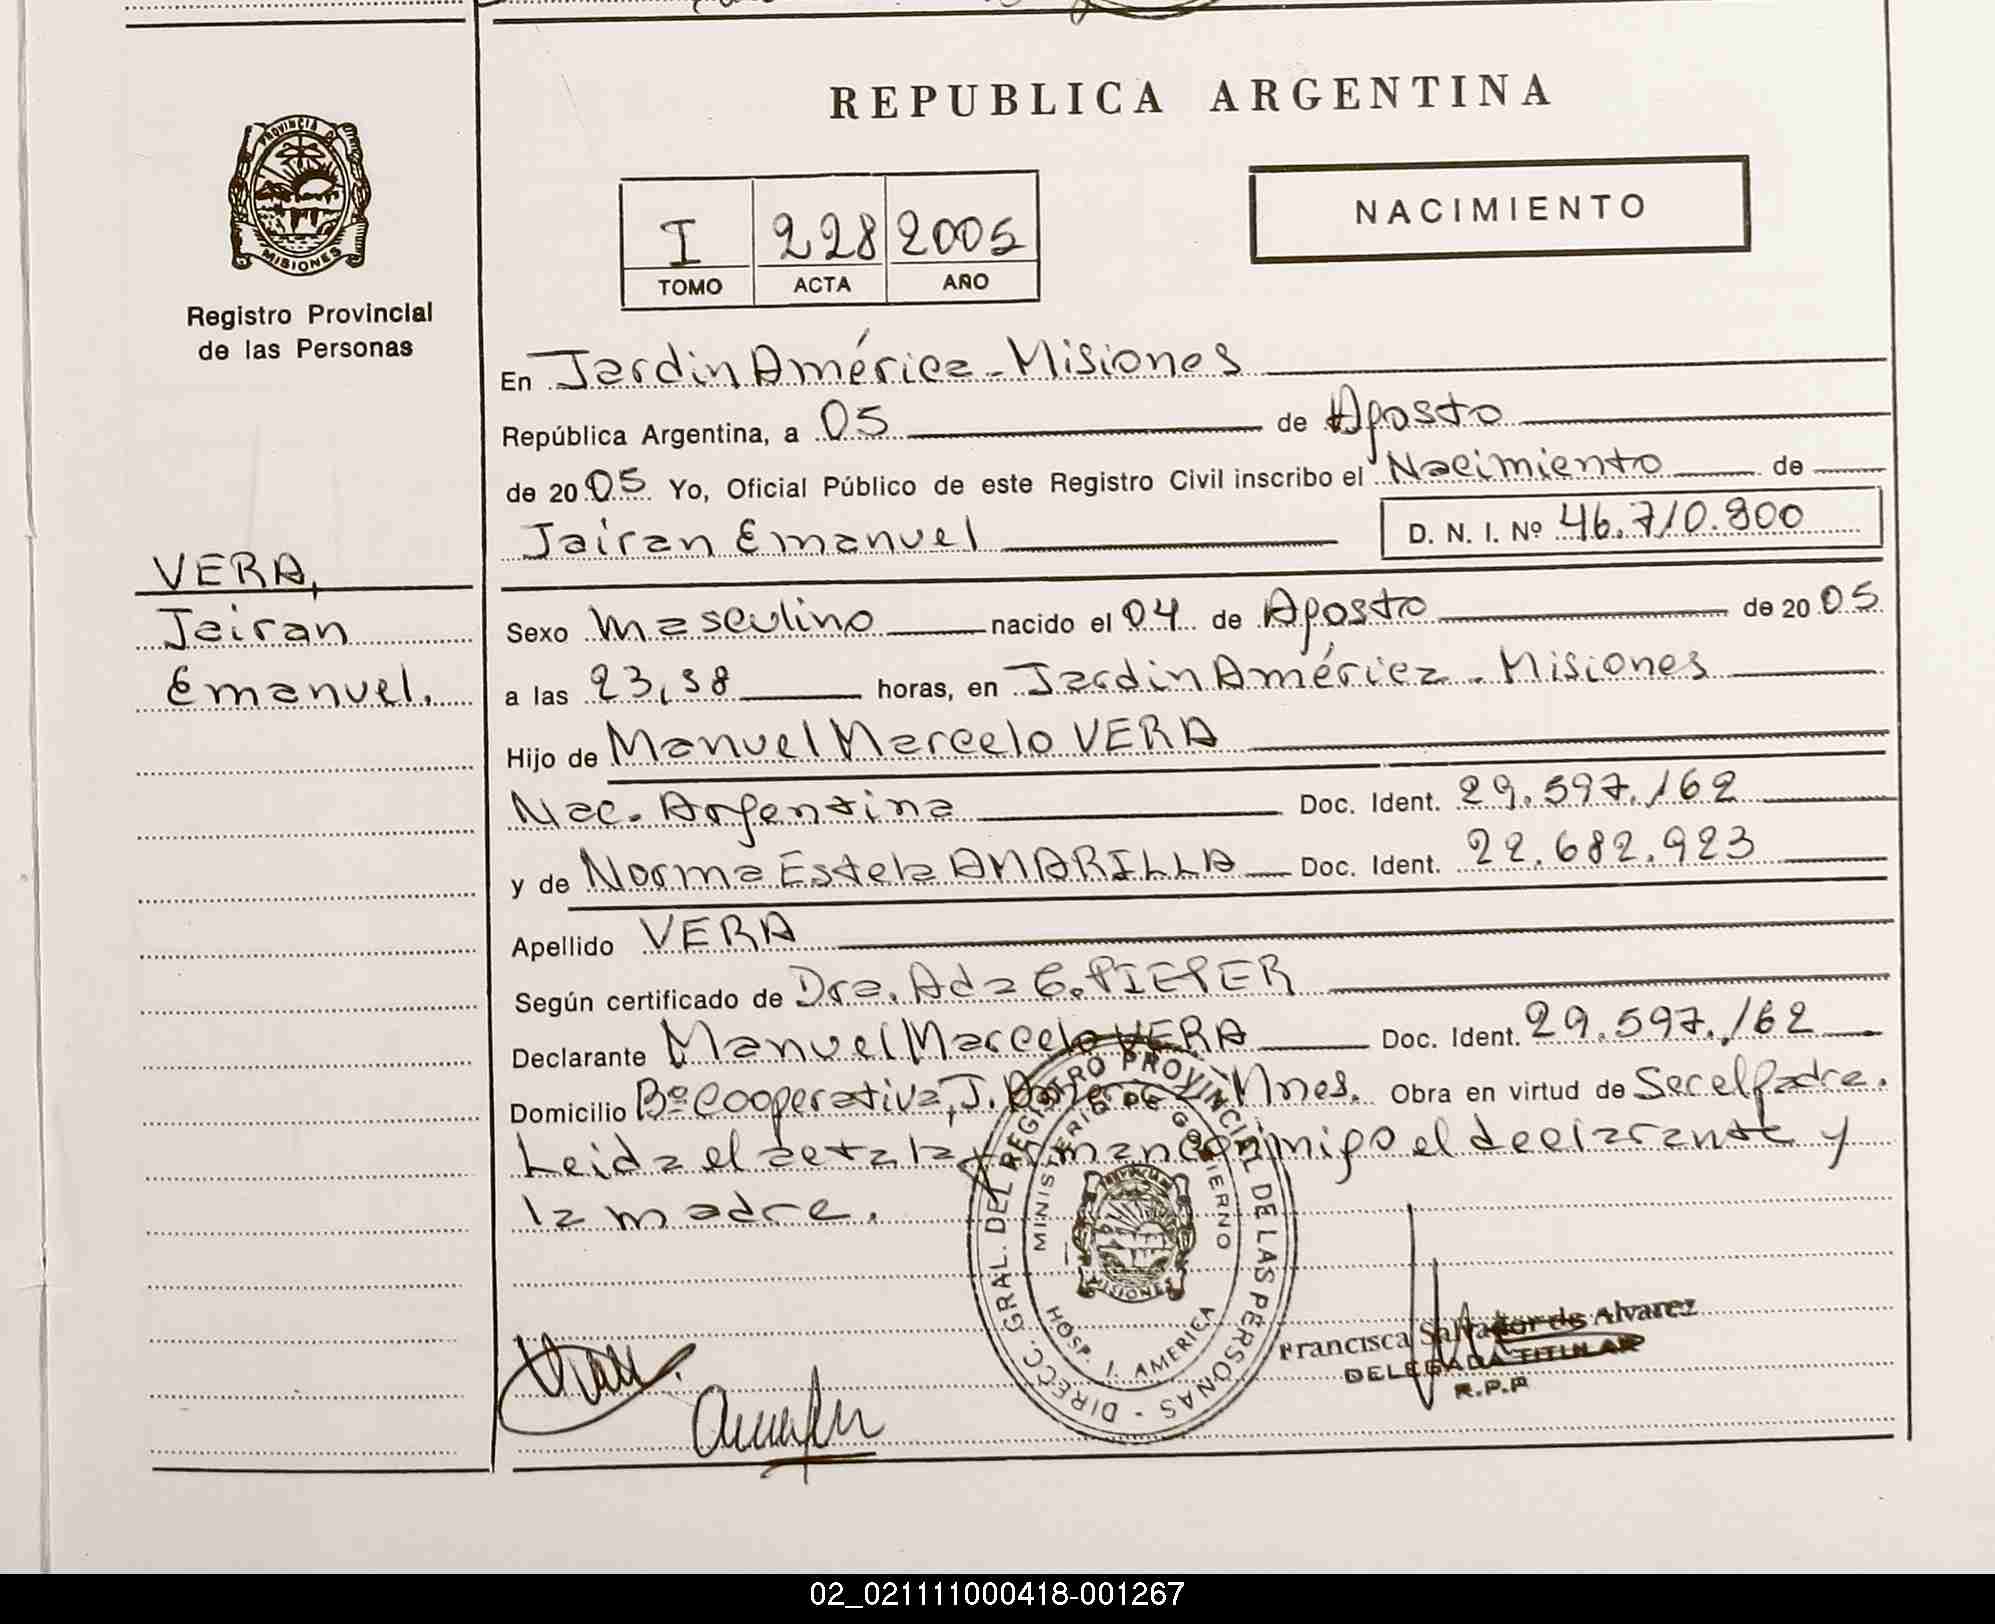 REPUBLICA ARGENTINA
PROVINCIA DE
MISIONES
Registro Provincial
de las Personas
NACIMIENTO
I 228 2005
TOMO ACTA AÑO
En Jardin América - Misiones
República Argentina, a 05 de Agosto
de 2005 Yo, Oficial Público de este Registro Civil inscribo el Nacimiento de
Jairan Emanuel D. N. I. Nº 46.710.800
VERA,
Jairan
Emanuel.
Sexo Masculino nacido el 04 de Agosto de 2005
a las 23,38 horas, en Jardin América - Misiones
Hijo de Manuel Marcelo VERA
Nac. Argentina Doc. Ident. 29.597.162
y de Norma Estela AMARILLA Doc. Ident. 22.682.923
Apellido VERA
Según certificado de Dra. Ada E. PIEPER
Declarante Manuel Marcelo VERA Doc. Ident. 29.597.162
Domicilio Bº Cooperativa, J. América - Mnes. Obra en virtud de Ser el padre.
Leida el acta la firman conmigo el declarante y
la madre.
DIRECC. GRAL. DEL REGISTRO PROVINCIAL DE LAS PERSONAS -
MINISTERIO DE GOBIERNO
MISIONES
HOSP. J. AMERICA
Francisca Salvador de Alvarez
DELEGADA TITULAR
R.P.P
02_021111000418-001267